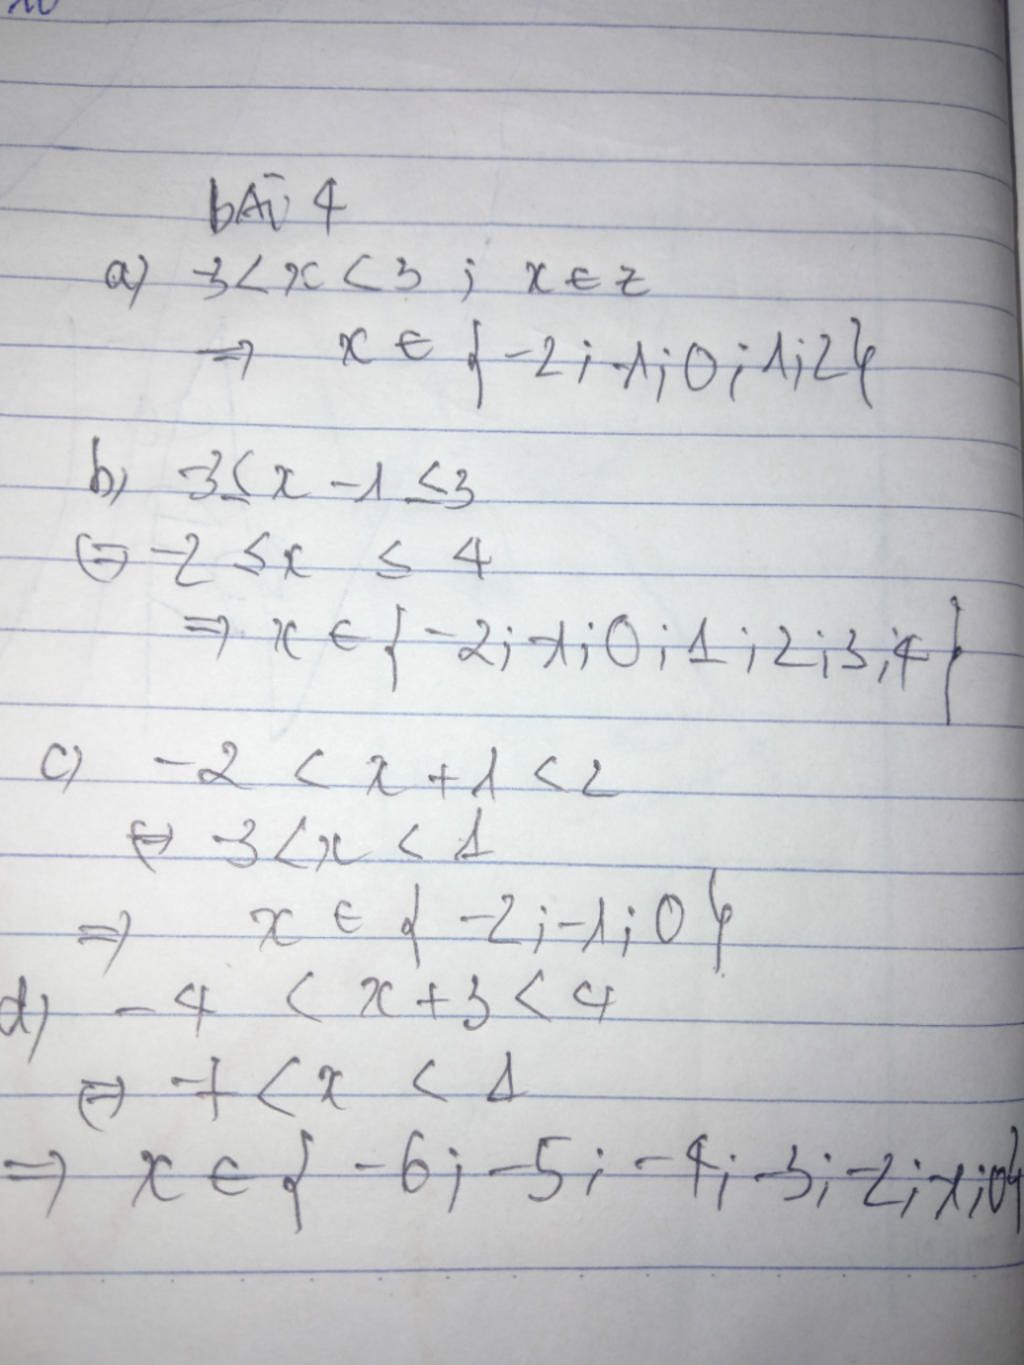 bÀi 4
a) -3 < x < 3 ; x ∈ z
⇒ x ∈ { -2 ; -1 ; 0 ; 1 ; 2 }
b) -3 ≤ x - 1 ≤ 3
⇔ -2 ≤ x ≤ 4
⇒ x ∈ { -2 ; -1 ; 0 ; 1 ; 2 ; 3 ; 4 }
c) -2 < x + 1 < 2
⇔ -3 < x < 1
⇒ x ∈ { -2 ; -1 ; 0 }
d) -4 < x + 3 < 4
⇔ -7 < x < 1
⇒ x ∈ { -6 ; -5 ; -4 ; -3 ; -2 ; -1 ; 0 }